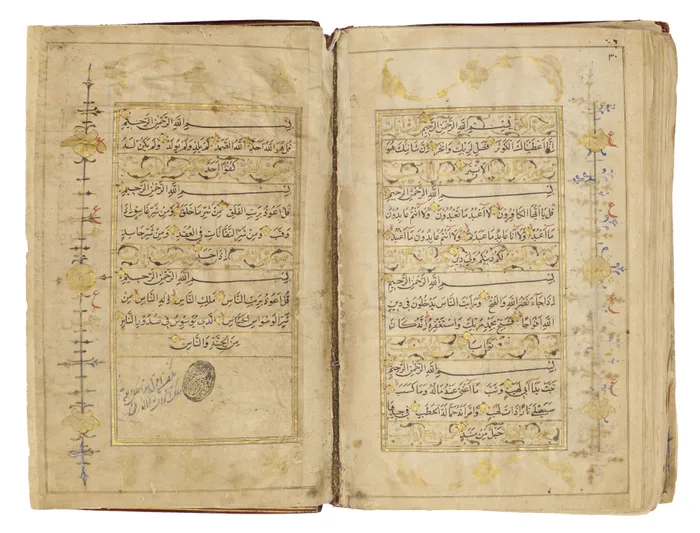 بسم الله الرحمن الرحيم
إنا أعطيناك الكوثر فصل لربك وانحر إن شانئك هو
الأبتر
بسم الله الرحمن الرحيم
قل يا أيها الكافرون لا أعبد ما تعبدون ولا أنتم عابدون
ما أعبد ولا أنا عابد ما عبدتم ولا أنتم عابدون ما أعبد
لكم دينكم ولي دين
بسم الله الرحمن الرحيم
إذا جاء نصر الله والفتح ورأيت الناس يدخلون في دين
الله أفواجا فسبح بحمد ربك واستغفره إنه كان
توابا
بسم الله الرحمن الرحيم
تبت يدا أبي لهب وتب ما أغنى عنه ماله وما كسب
سيصلى نارا ذات لهب وامرأته حمالة الحطب في جيدها
حبل من مسد
بسم الله الرحمن الرحيم
قل هو الله أحد الله الصمد لم يلد ولم يولد ولم يكن له
كفوا أحد
بسم الله الرحمن الرحيم
قل أعوذ برب الفلق من شر ما خلق ومن شر غاسق إذا
وقب ومن شر النفاثات في العقد ومن شر حاسد
إذا حسد
بسم الله الرحمن الرحيم
قل أعوذ برب الناس ملك الناس إله الناس من
شر الوسواس الخناس الذي يوسوس في صدور الناس
من الجنة والناس